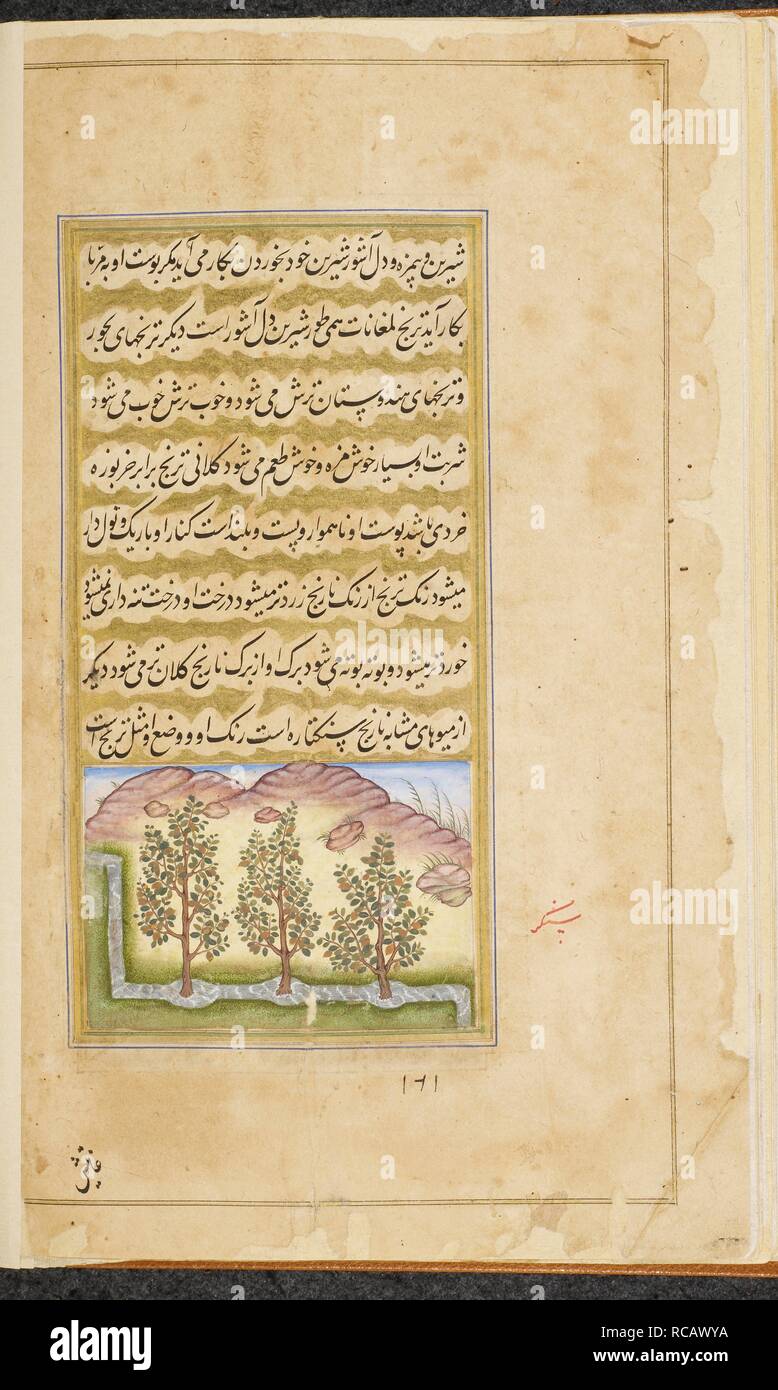 شیرین و بیمزه و دل آشور شیرین خود بخوردن بکار می آید مکر پوست او به مربا
بکار آید ترنج لمغانات همی طور شیرین دل آشور است دیکر ترنجهای بجور
و ترنجهای هندوستان ترش می شود و خوب ترش خوب می شود
شربت او بسیار خوش مزه و خوش طعم می شود کلانی ترنج برابر خربوزه
خردی باشد پوست او ناهموار و پست و بلند است کنار او باریک و تول دار
میشود رنک ترنج از رنک نارنج زردتر میشود درخت او درخت تنه داری نمیشود
خوردتر میشود و بوته بوته می شود برک او از برک نارنج کلان تر می شود دیکر
از میوهای مشابه نارنج سنکتاره است رنک او و وضع او مثل ترنج است
alamy
a
alamy
Image ID: RCAWYA
www.alamy.com